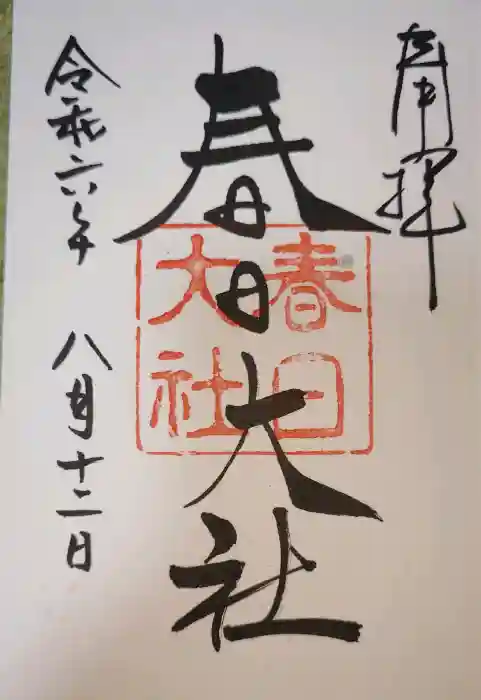 奉拝
春日大社
春日
大社
令和六年 八月十二日